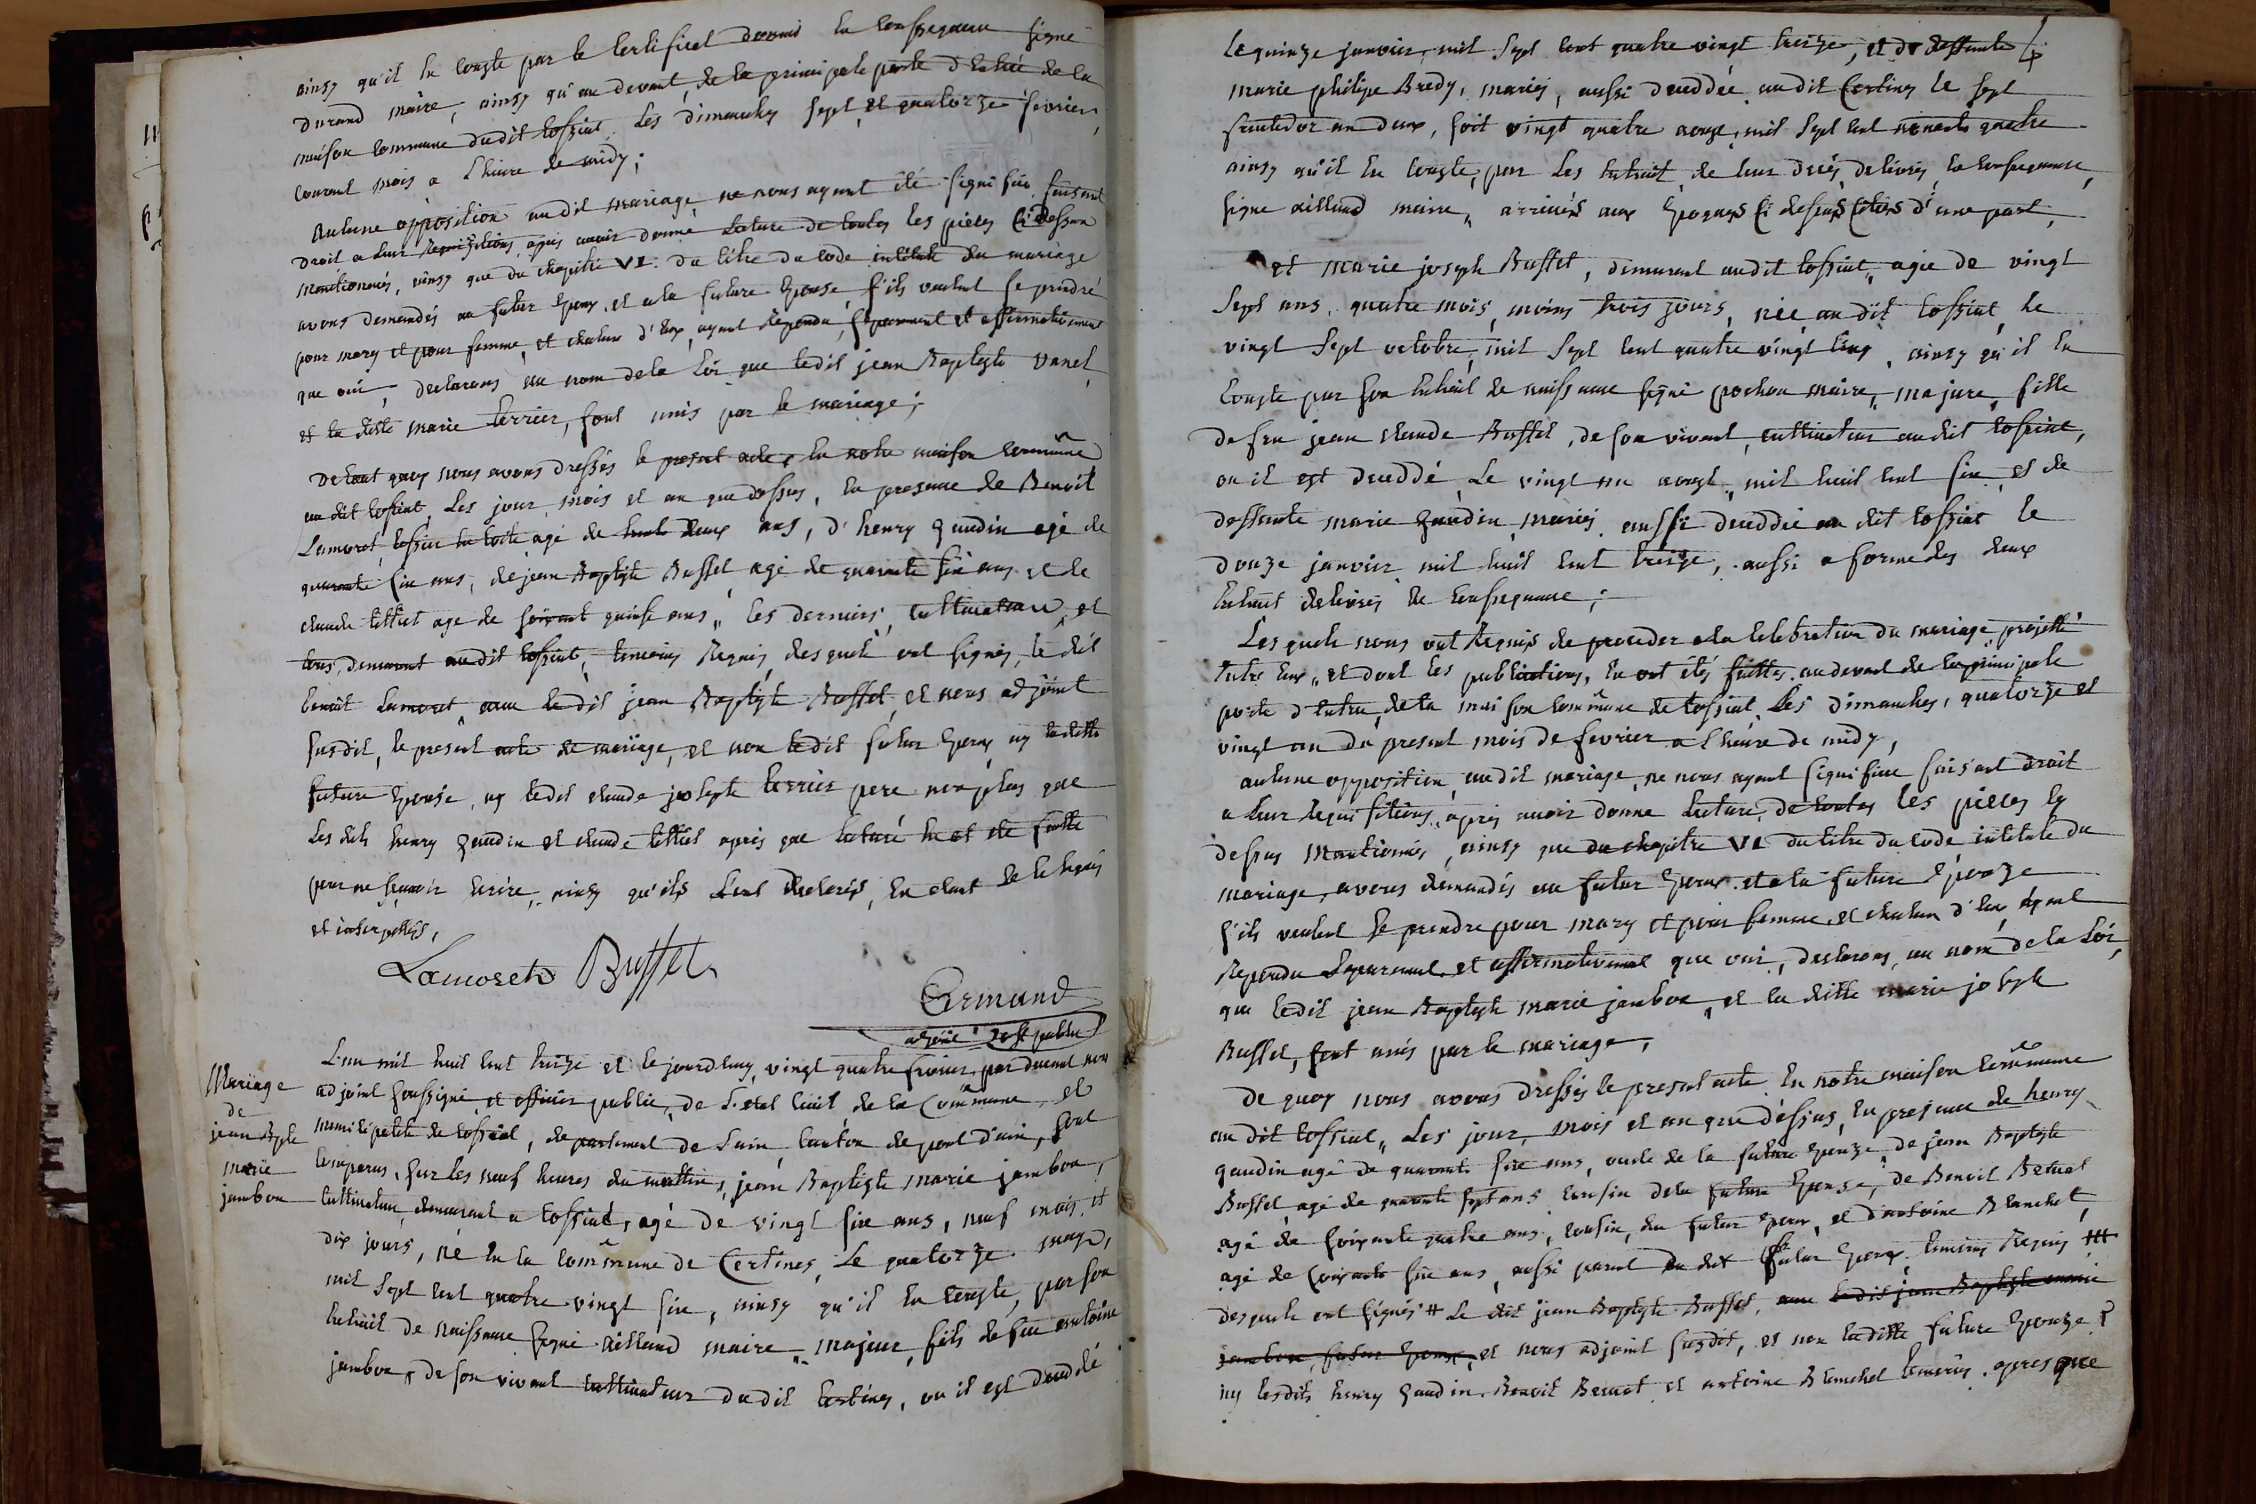 ainsy qu'il en conste par le certificat donné en consequence signé
durand maire, ainsy qu'au devant de la principale porte d'entrée de la
maison commune dudit tossiat, Les dimanches sept et quatorze fevrier
courant mois a L'heure de midy;
Aucune opposition audit mariage ne nous ayant été signifiée faisant
Droit a Leur requisitions, après avoir donné Lecture de toutes les pièces cidessus
mentionnés, ainsy que du chapitre VI. du titre du code intitulé du mariage
avons demandés au futur Epoux et a la future Epouse s'ils veulent se prendre
pour mary et pour femme, et chacun d'eux, ayant répondu separement et affirmativement
que oui, declarons au nom de la Loi que ledit jean Baptiste vanel
et la ditte marie terrier, sont unis par le mariage;
De tout quoy nous avons dressés le present acte, en notre maison commune
au dit tossiat Les jour mois et an que dessus, en presence de Benoit
Lamoret, agé de trente deux ans, d'henry gaudin agé de
quarante six ans, de jean Baptiste Buffet agé de quarante six ans et de
claude tettiet agé de soixante quinse ans, les derniers, cultivateurs et
tous, demeurant audit tossiat, temoins Requis, desquels ont signés, le dit
benoit Lamoret, avec le dit jean Baptiste Buffet et nous adjoint
susdit, le present acte de mariage, et non ledit futur Epoux ny laditte
future Epouse, ny ledit claude joseph terrier pere non plus que
Les dits henry gaudin et claude tettiet après que lecture en a été faitte
pour ne sçavoir Ecrire, ainsy qu'ils L'ont declarés, en etant de ce Requis
et interpellés,
Lamoreth Buffet
Ermand
adjoint off. public
Mariage
de
jean Bpte
marie
jambon
L'an mil huit cent treize et le jourdhuy, vingt quatre fevrier, par devant nous
adjoint soussigné et officier public, de L'etat civil de la Commune, et
municipalité de tossiat, departement de L'ain, canton de pont d'ain, sont
comparus, sur les neuf heures du mattin, jean Baptiste marie jambon,
cultivateur, demeurant a tossiat, agé de vingt six ans, neuf mois et
dix jours, né en la commune de Certines, Le quatorze may,
mil sept cent quatre vingt six, ainsy qu'il en conste, par son
Extrait de naissance signé Aillaud maire, majeur, fils de feu antoine
jambon, de son vivant cultivateur dudit Certines, ou il est deceddé
Le quinze janvier mil sept cent quatre vingt treize, et de deffunte
marie philipe Bredy, mariés, aussi deceddée audit Certines le sept
fructidor an deux, soit vingt quatre aoust, mil sept cent nonante quatre
ainsy qu'il en conste, par Les Extrait de leur decès, delivrés, en consequence,
signé aillaud maire, arrivés aux Epoques ci dessus citées d'une part,
et marie joseph Buffet, demeurant audit tossiat, agée de vingt
sept ans, quatre mois, moins trois jours, née au dit tossiat, le
vingt sept octobre, mil sept cent quatre vingt cinq, ainsy qu'il en
conste par son Extrait de naissance signé pochon maire, majeure, fille
de feu jean claude Buffet, de son vivant, cultivateur audit tossiat,
ou il est deceddé, Le vingt un aoust, mil huit cent six, et de
deffunte marie gaudin, mariés, aussi deceddée au dit tossiat le
douze janvier mil huit cent treize, aussi a forme des deux
Extrait delivrés en consequence;
Les quels nous ont Requis de proceder a la celebration du mariage projetté
Entre eux, et dont les publications, en ont étés faittes, au devant de la principale
porte d'entrée, de la maison commune de tossiat Les dimanches, quatorze et
vingt un du present mois de fevrier a L'heure de midy,
aucune opposition, audit mariage, ne nous ayant signifiée faisant droit
a Leur requisitions, après avoir donné Lecture, de toutes les pièces cy
dessus mentionnés, ainsy que du chapitre VI du titre du code intitulé du
mariage, avons demandés au futur Epoux et a la future Epouze
s'ils veulent se prendre pour mary et pour femme, et chacun d'eux, ayant
Repondu separement, et affirmativement que oui, declarons, au nom de la Loi,
que ledit jean Baptiste marie jambon, et la ditte marie joseph
Buffet, sont unis par le mariage,
De quoy nous avons dressés le present acte En notre maison commune
au dit tossiat, Les jour, mois et an que dessus, En presence de henry
gaudin agé de quarante six ans, oncle de la future Epouze, de jean Baptiste
Buffet agé de quarante sept ans cousin de la future Epouse, de Benoit Bernat
agé de soixante quatre ans, cousin, du futur Epoux, et d'antoine Blanchet,
agé de soixante six ans, aussi parent du dit futur Epoux, temoins Requis ###
desquels ont signés # Le dit jean Baptiste Buffet, avec ledit jean Baptiste marie
jambon, futur Epoux, et nous adjoint susdit, et non laditte future Epouze
ny lesdits henry gaudin, Benoit Bernat et antoine Blanchet temoins, apres que